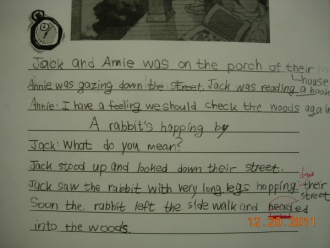 Jack and Annie was on the porch of their house
Annie was gazing down the street. Jack was reading a book
Annie: I have a feeling we should check the woods again
A rabbit's hopping by
Jack: What do you mean?
Jack stood up and looked down their street.
Jack saw the rabbit with very long legs hopping their street
Soon the rabbit left the sidewalk and headed
into the woods.
12.20.2011